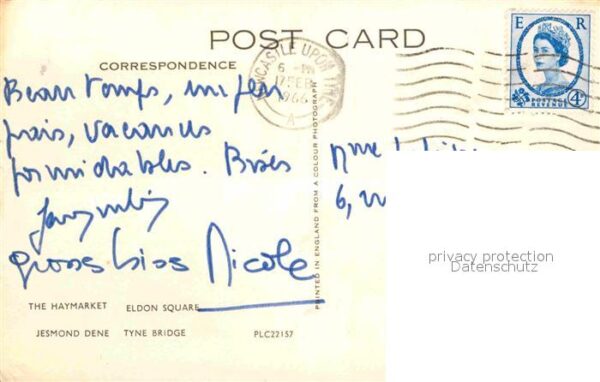 POST CARD
CORRESPONDENCE
NEWCASTLE UPON TYNE
6 - PM
17 FEB
1966
A
E R
POSTAGE
REVENUE
4D
Beau temps, un peu
frais, vacances
formidables. Bises
gross biss Nicole
Mme
6,
PRINTED IN ENGLAND FROM A COLOUR PHOTOGRAPH
privacy protection
Datenschutz
THE HAYMARKET ELDON SQUARE
JESMOND DENE TYNE BRIDGE PLC22157